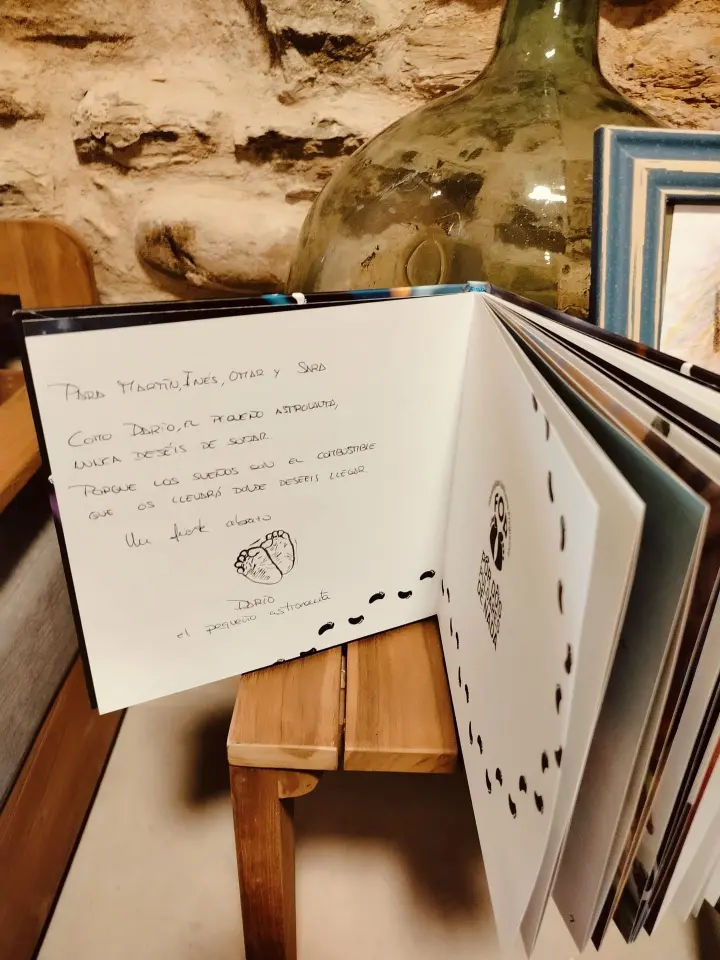 PARA MARTÍN, INÉS, OMAR Y SARA
COMO DARÍO, EL PEQUEÑO ASTRONAUTA,
NUNCA DEJÉIS DE SOÑAR.
PORQUE LOS SUEÑOS SON EL COMBUSTIBLE
QUE OS LLEVARÁ DONDE DESEÉIS LLEGAR
Un fuerte abrazo
DARÍO
el pequeño astronauta
POR TODO